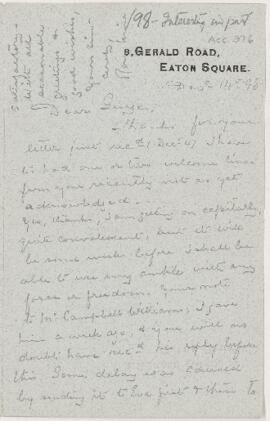 1/98 - Interesting in part
Acc 376
8, GERALD ROAD,
EATON SQUARE.
Decr 14th 98
Dear George,
Thanks for your
letter just recd (Dec. 6th) I have
to had one or two welcome lines
from you recently not as yet
acknowledged.
Yes, thanks, I am getting on capitally,
quite convalescent, but it will
be some weeks before I shall be
able to use my ankle with any
force or freedom. Your note
to Mr. Campbell Williams, I gave
him a week ago, & you will no
doubt have recd his reply before
this. Some delay was caused
by sending it to Eva first & then to
satisfactory.
With all
seasonable
greetings &
good wishes,
Yours sin-